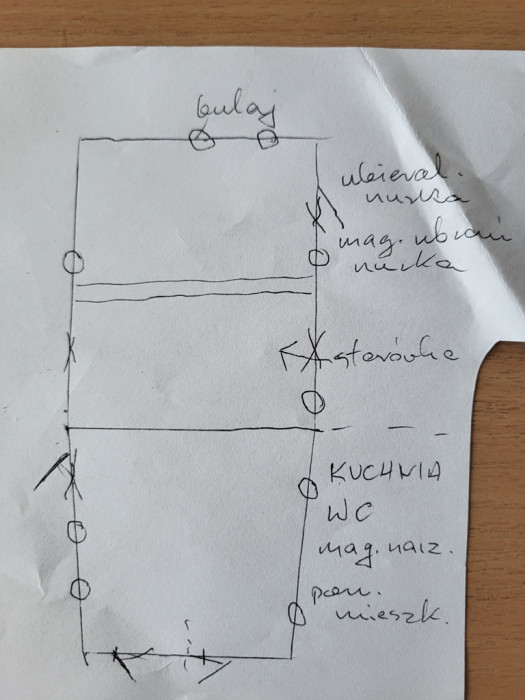 bulaj
ubieral.
nurka
mag. ubrań
nurka
sterówka
KUCHNIA
WC
mag. narz.
pom.
mieszk.